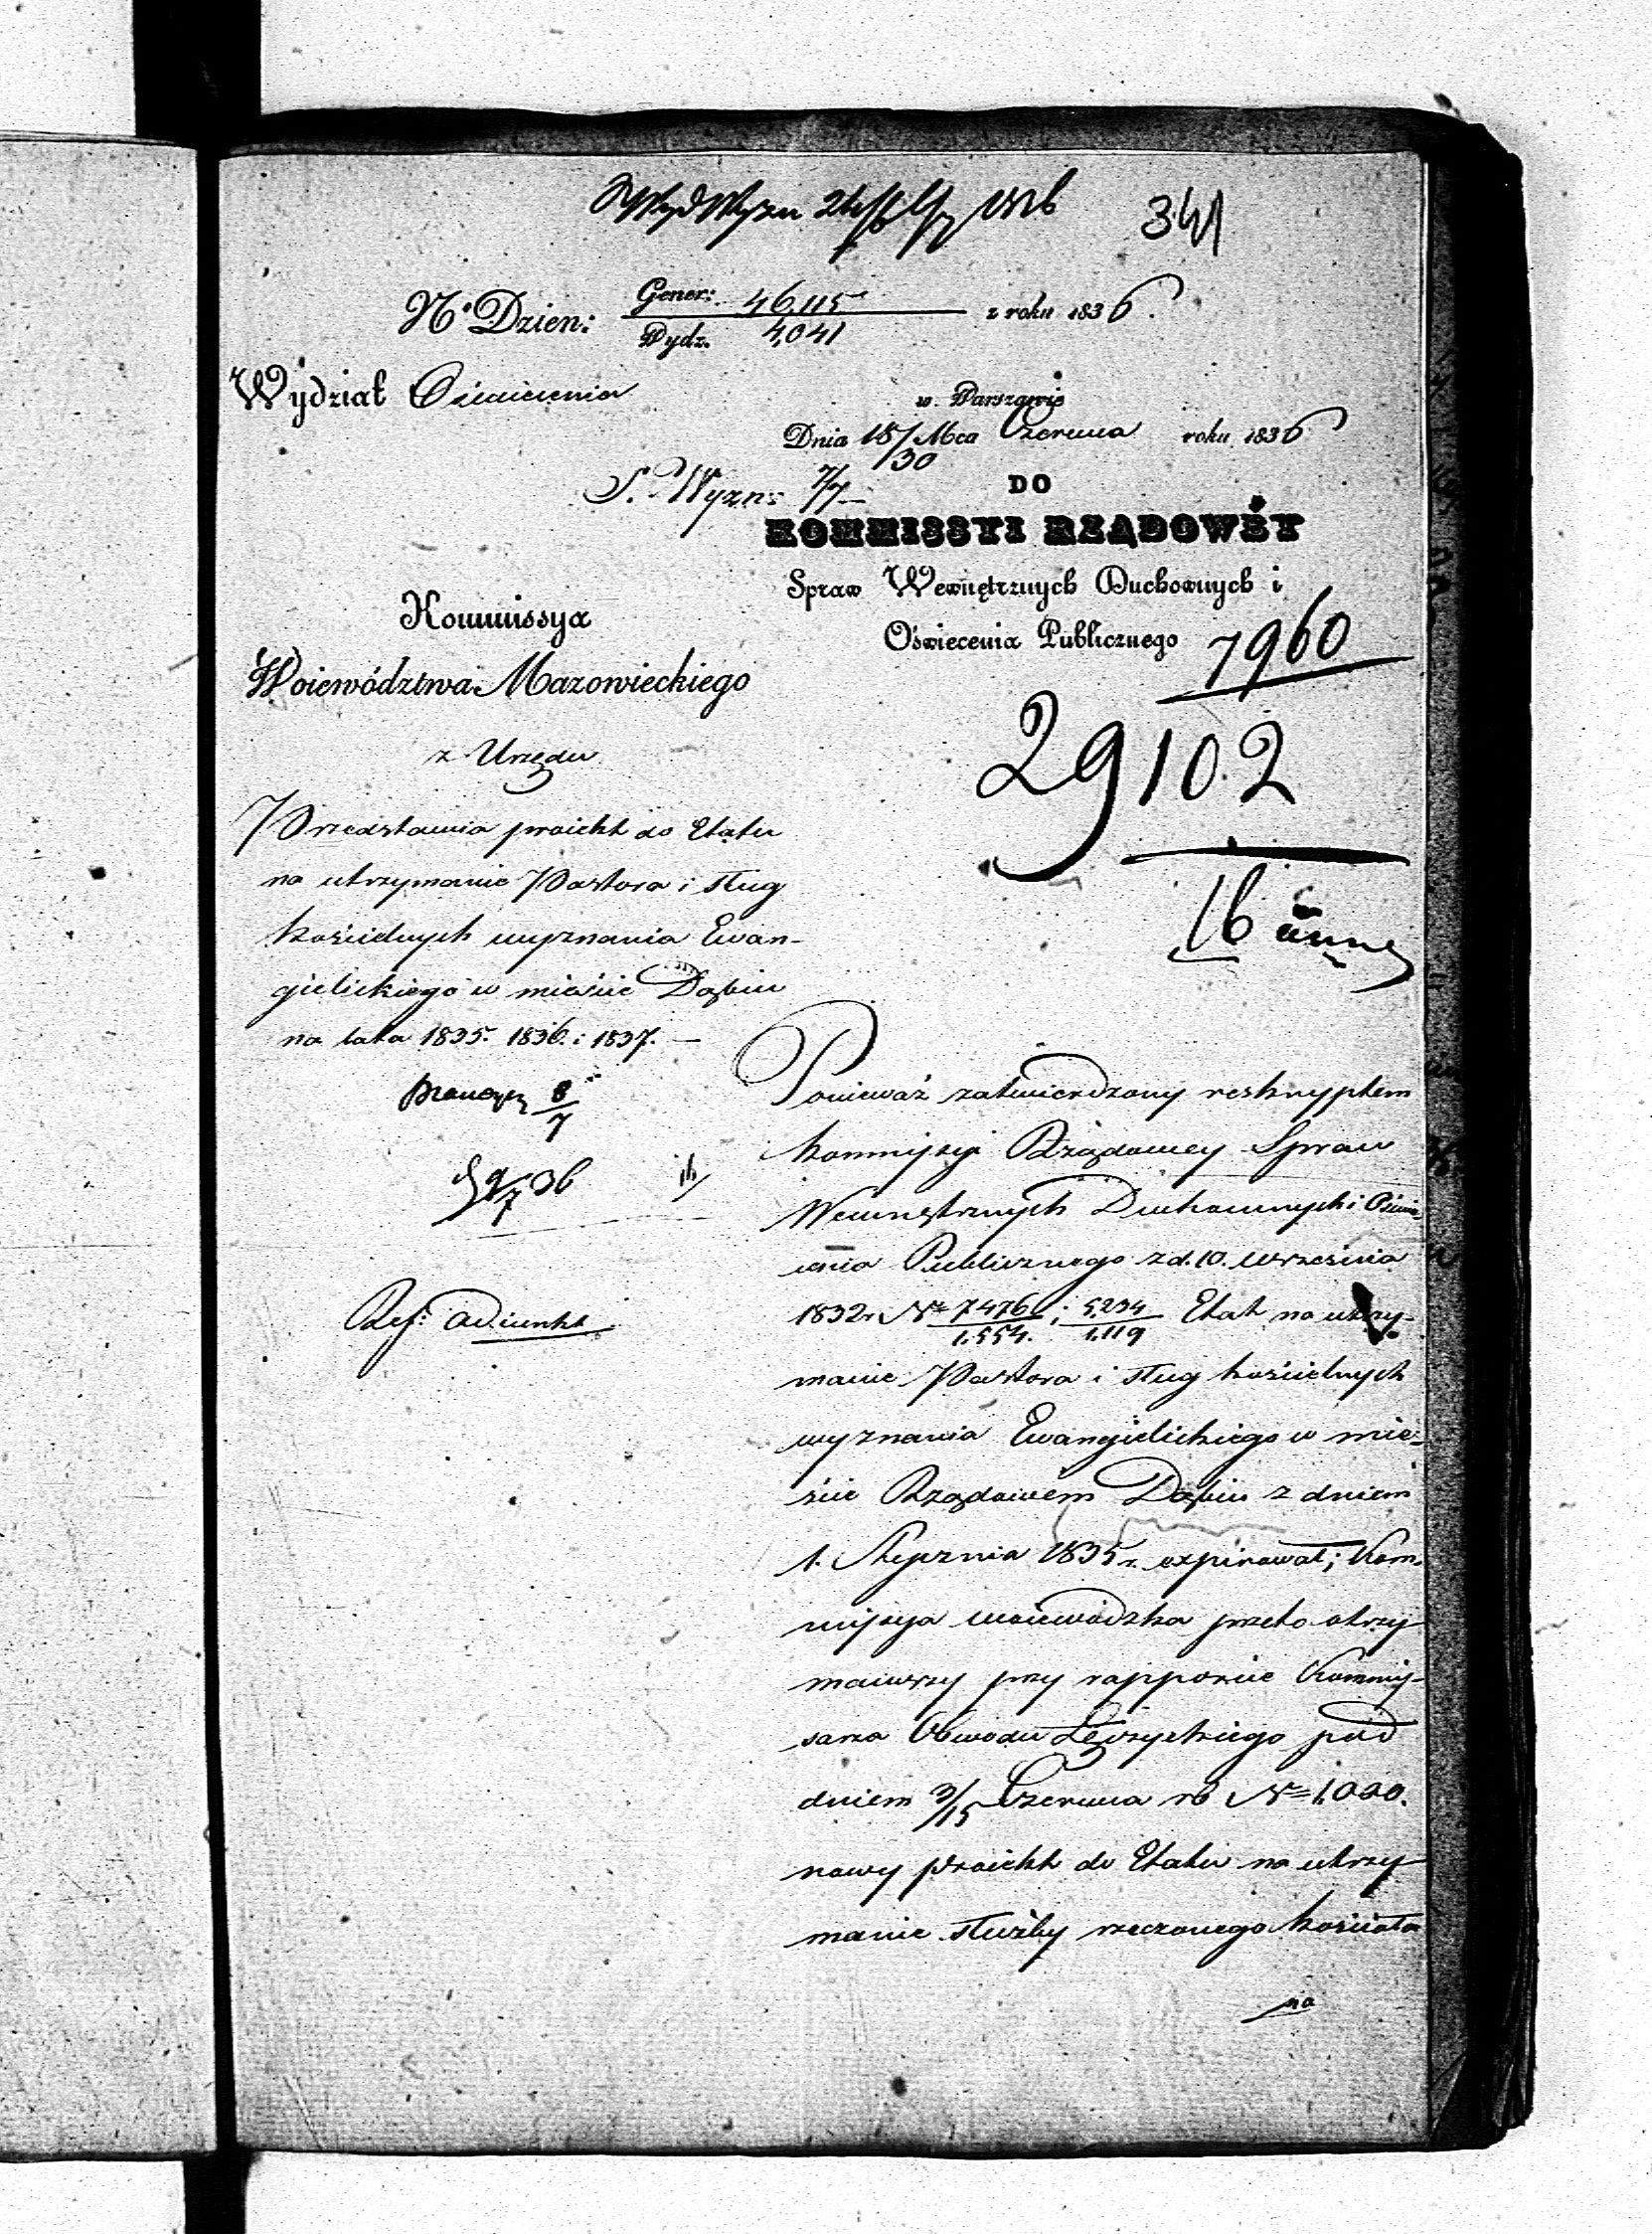 341
N.° Dzien: Gener: 46,115 z roku 1836.
Wydz. 4,041
Wydział Oświecenia
w Warszawie
Dnia 18/30 Mca Czerwca roku 1836
S. Wyzn: 7/7
DO
KOMMISSYI RZĄDOWÉY
Spraw Wewnętrznych Duchownych i
Oświecenia Publicznego
7960
29102
16
Kommissya
Woiewództwa Mazowieckiego
z Urzędu
Przedstawia proiekt do Etatu
na utrzymanie Pastora i sług
kościelnych wyznania Ewan-
gielickiego w mieście Dąbiu
na lata 1835. 1836. i 1837. —
8/7
9/7 36
Ref: Adiunkt
Ponieważ zatwierdzony reskryptem
Kommissyi Rządowey Spraw
Wewnętrznych Duchownych i Oświe-
cenia Publicznego z d. 10. września
1832 r. Nr 7476/1,554. i 5,234/1,119 Etat na utrzy-
manie Pastora i sług kościelnych
wyznania Ewangielickiego w mie-
ście Rządowém Dąbiu z dniem
1. Stycznia 1835 r. expirował; Kom-
missya woiewódzka przeto otrzy-
mawszy przy rapporcie Kommis-
sarza Obwodu Łęczyckiego pod
dniem 3/15 Czerwca rb Nr 1,020.
nowy proiekt do Etatu na utrzy-
manie służby rzeczonego kościoła
na